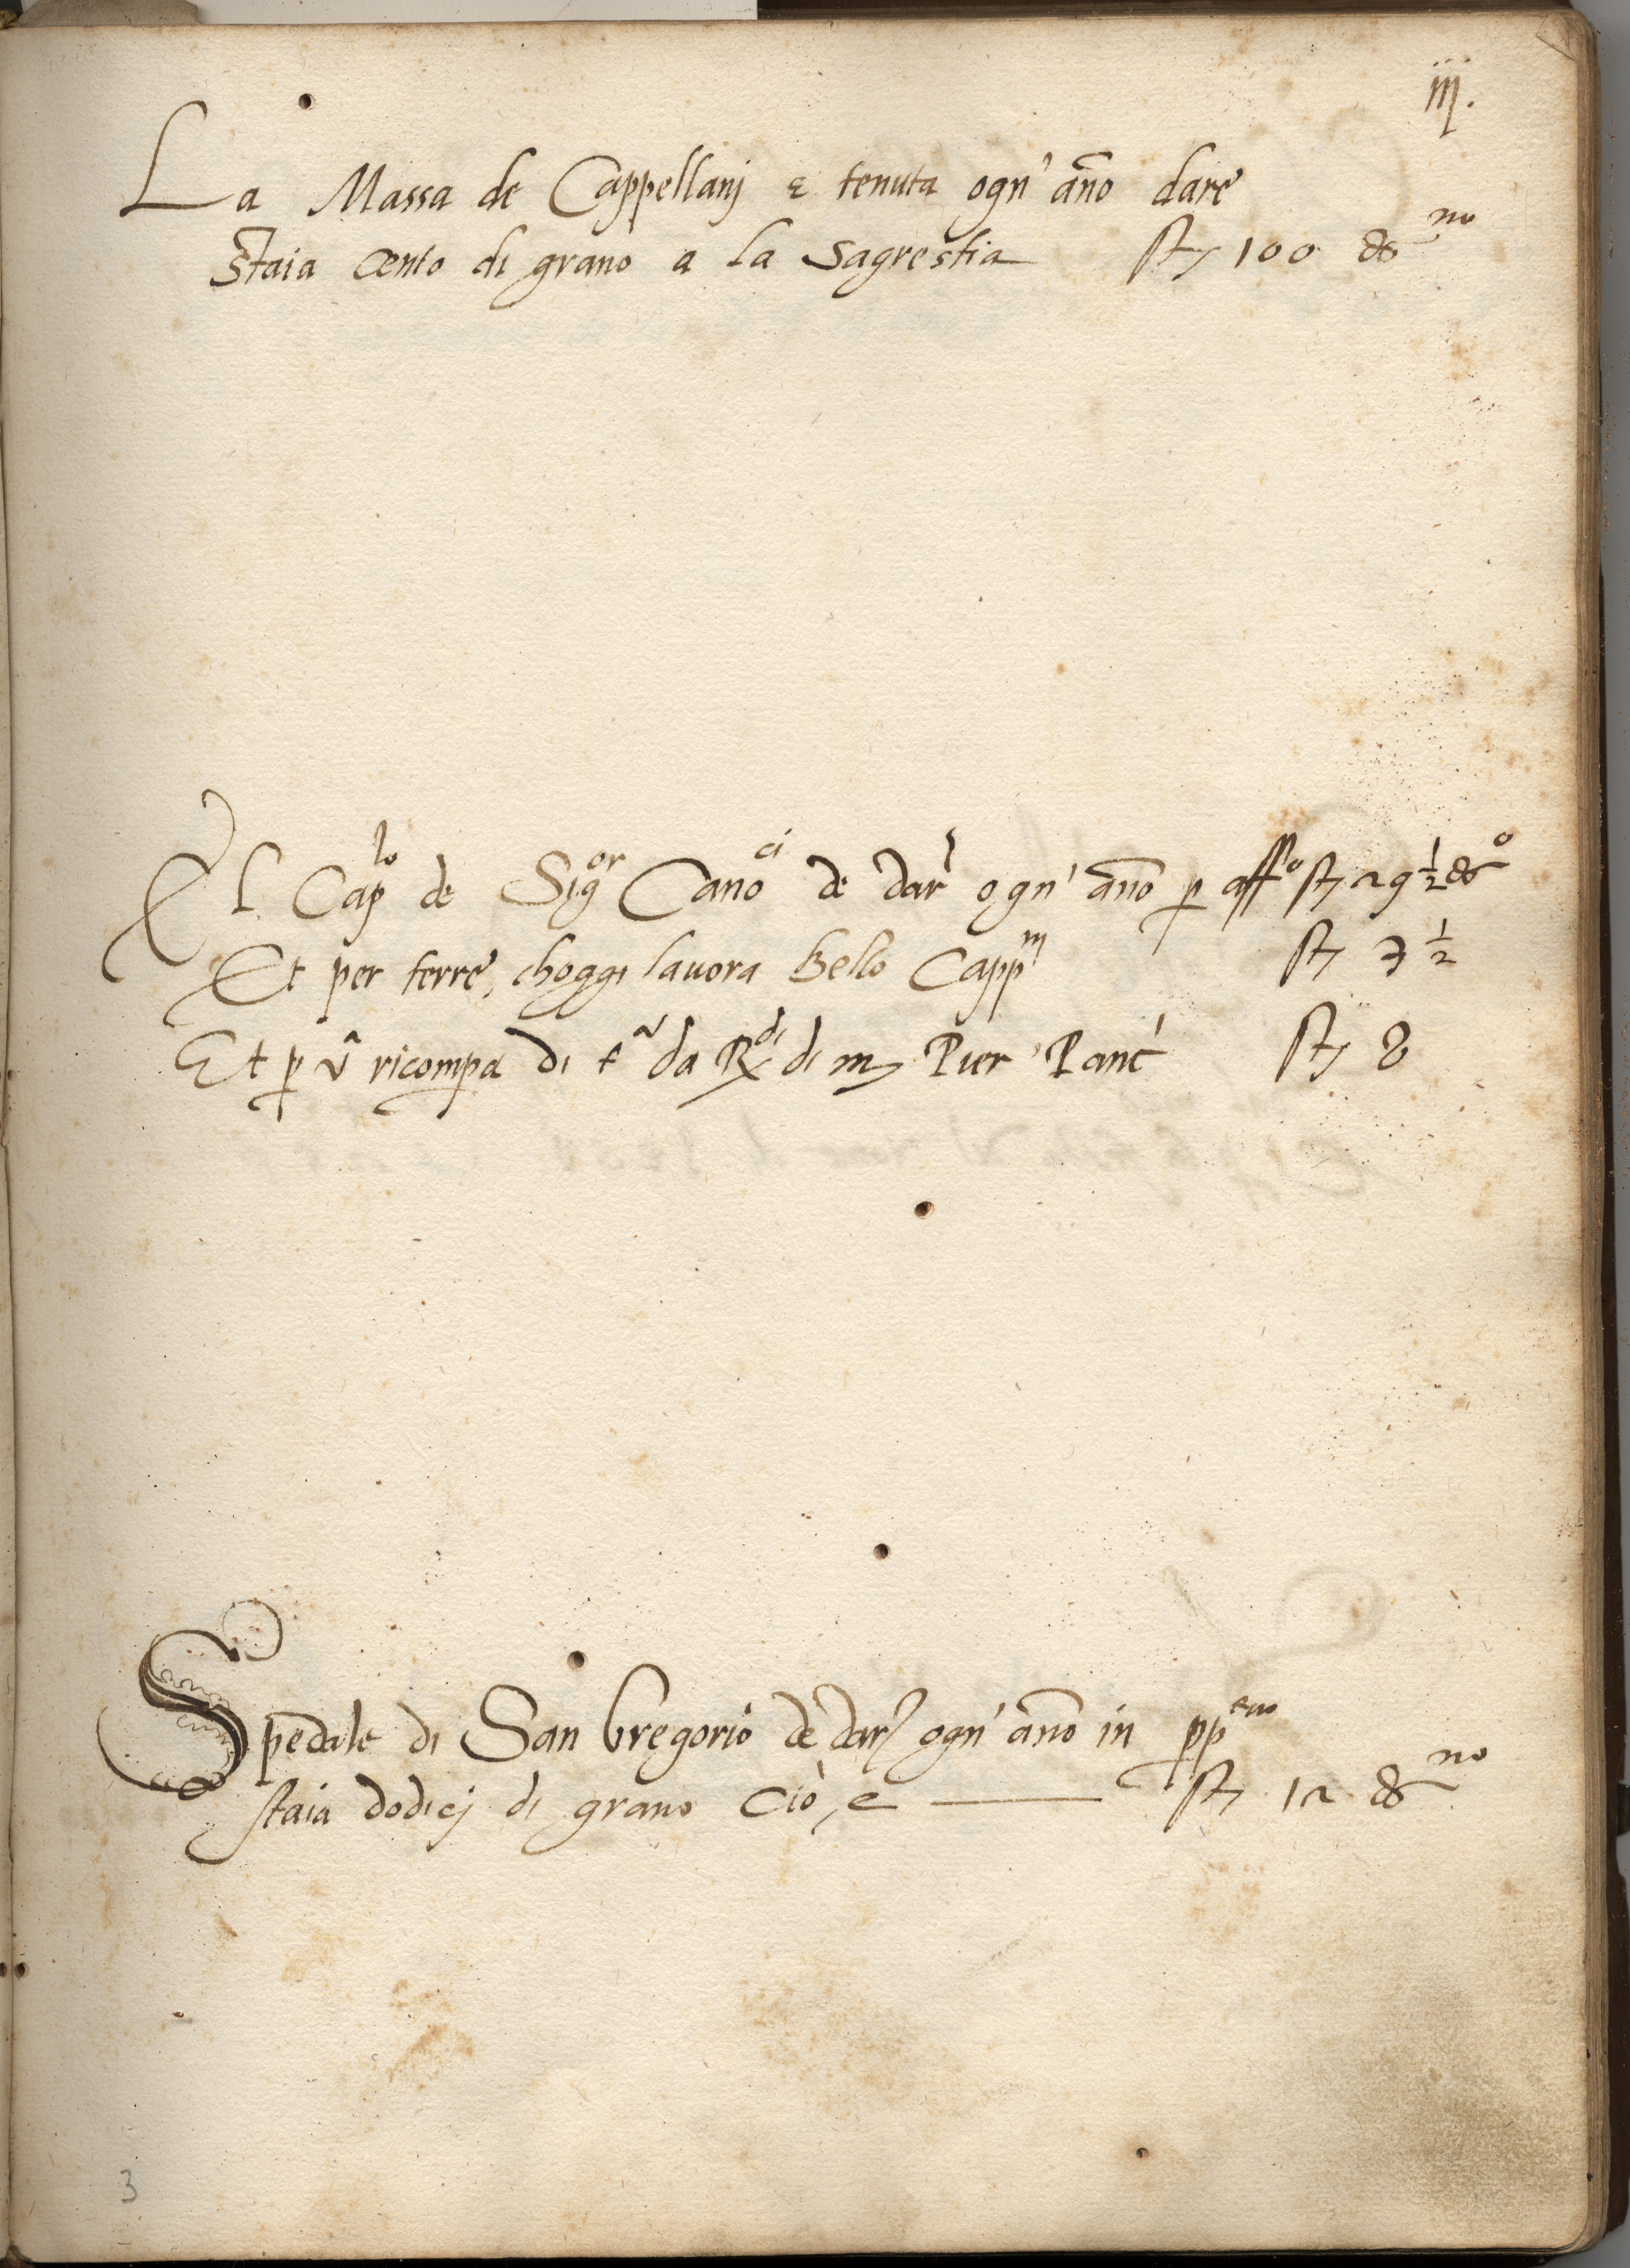 iij.
La Massa de Cappellanj è tenuta ogn' año dare
Staia cento di grano a la Sagrestia st 100 gno
El Caplo de Sigor Canoci de dar ogn' año p affo st 29 1/2 go
Et per terre, choggi lauora Bello Cappni st 7 1/2
Et p ricompa di da Rdi di m Pier Panc st 8
Spedale di San Gregorio de dar ogn' año in ppetuo
staia dodicj di grano Cio, e st 12 gno
3